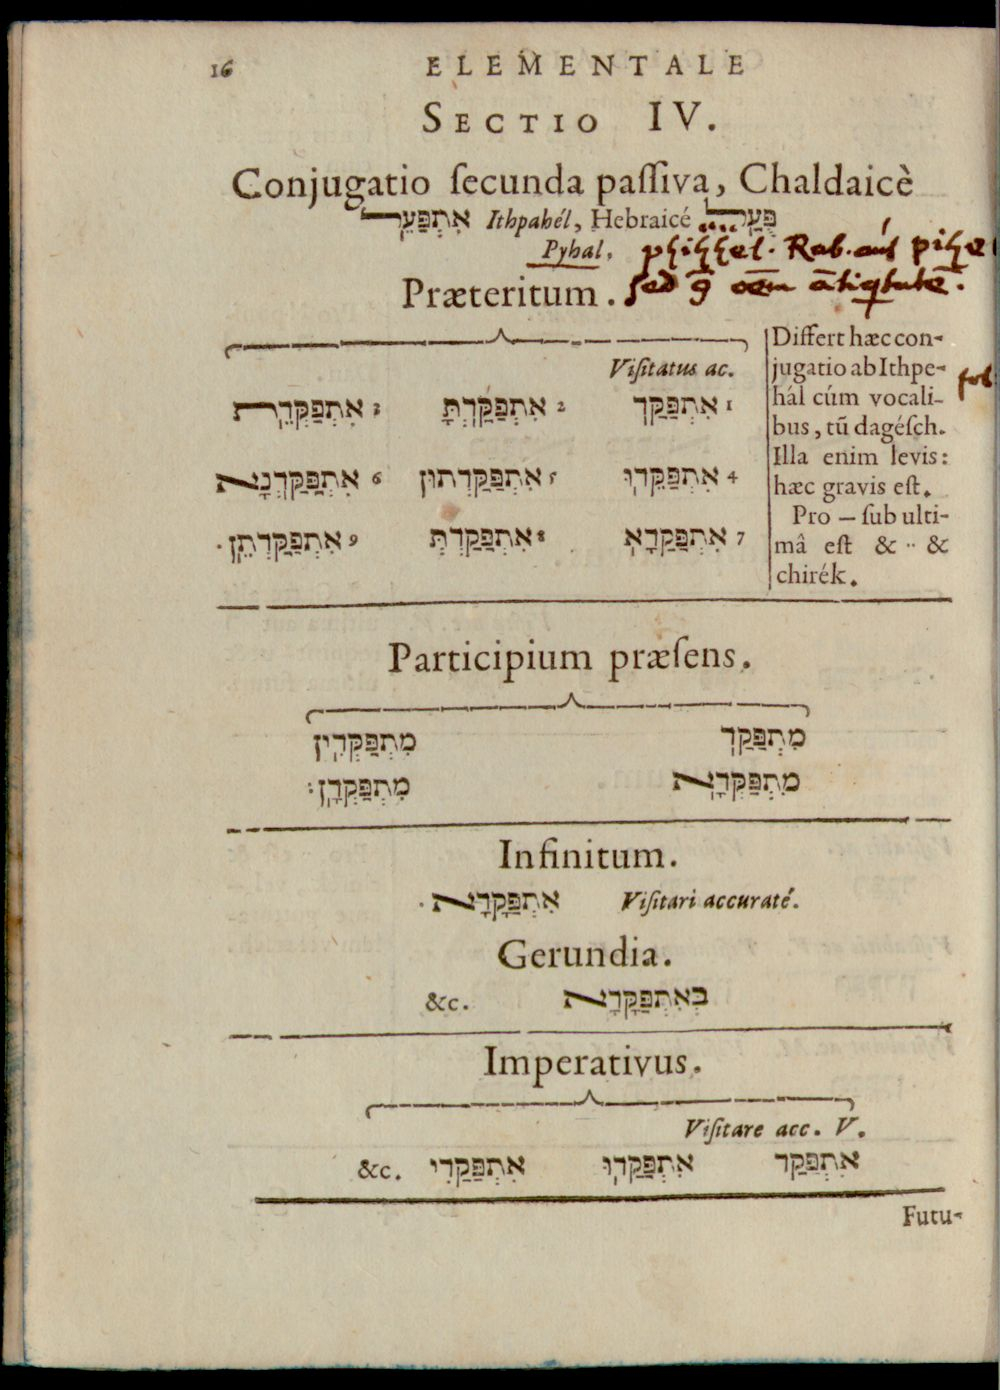 16 ELEMENTALE
SECTIO IV.
Conjugatio ſecunda paſſiva, Chaldaicè
אִתְפַּעַל Ithpahél, Hebraicé פֻּעַל
Pyhal.
Præteritum.
Viſitatus ac.
1 אִתְפַּקַּד 2 אִתְפַּקַּדְתָּ 3 אִתְפַּקְּדֵת
4 אִתְפַּקַּדוּ 5 אִתְפַּקַּדְתּוּן 6 אִתְפַּקַּדְנָא
7 אִתְפַּקַּדָא 8 אִתְפַּקַּדְתְּ 9 אִתְפַּקַּדְתֵן
Differt hæc con-
jugatio ab Ithpe-
hál cúm vocali-
bus, tũ dagéſch.
Illa enim levis:
hæc gravis eſt.
Pro – ſub ulti-
mâ eſt & ·· &
chirék.
Participium præſens.
מִתְפַּקַּד מִתְפַּקְּדִין
מִתְפַּקְּדָא מִתְפַּקְּדָן
Infinitum.
אִתְפַּקָּדָא Viſitari accuraté.
Gerundia.
בְּאִתְפַּקָּדָא &c.
Imperativus.
Viſitare acc. V.
אִתְפַּקַּד אִתְפַּקַּדוּ אִתְפַּקַּדִי &c.
Futu-